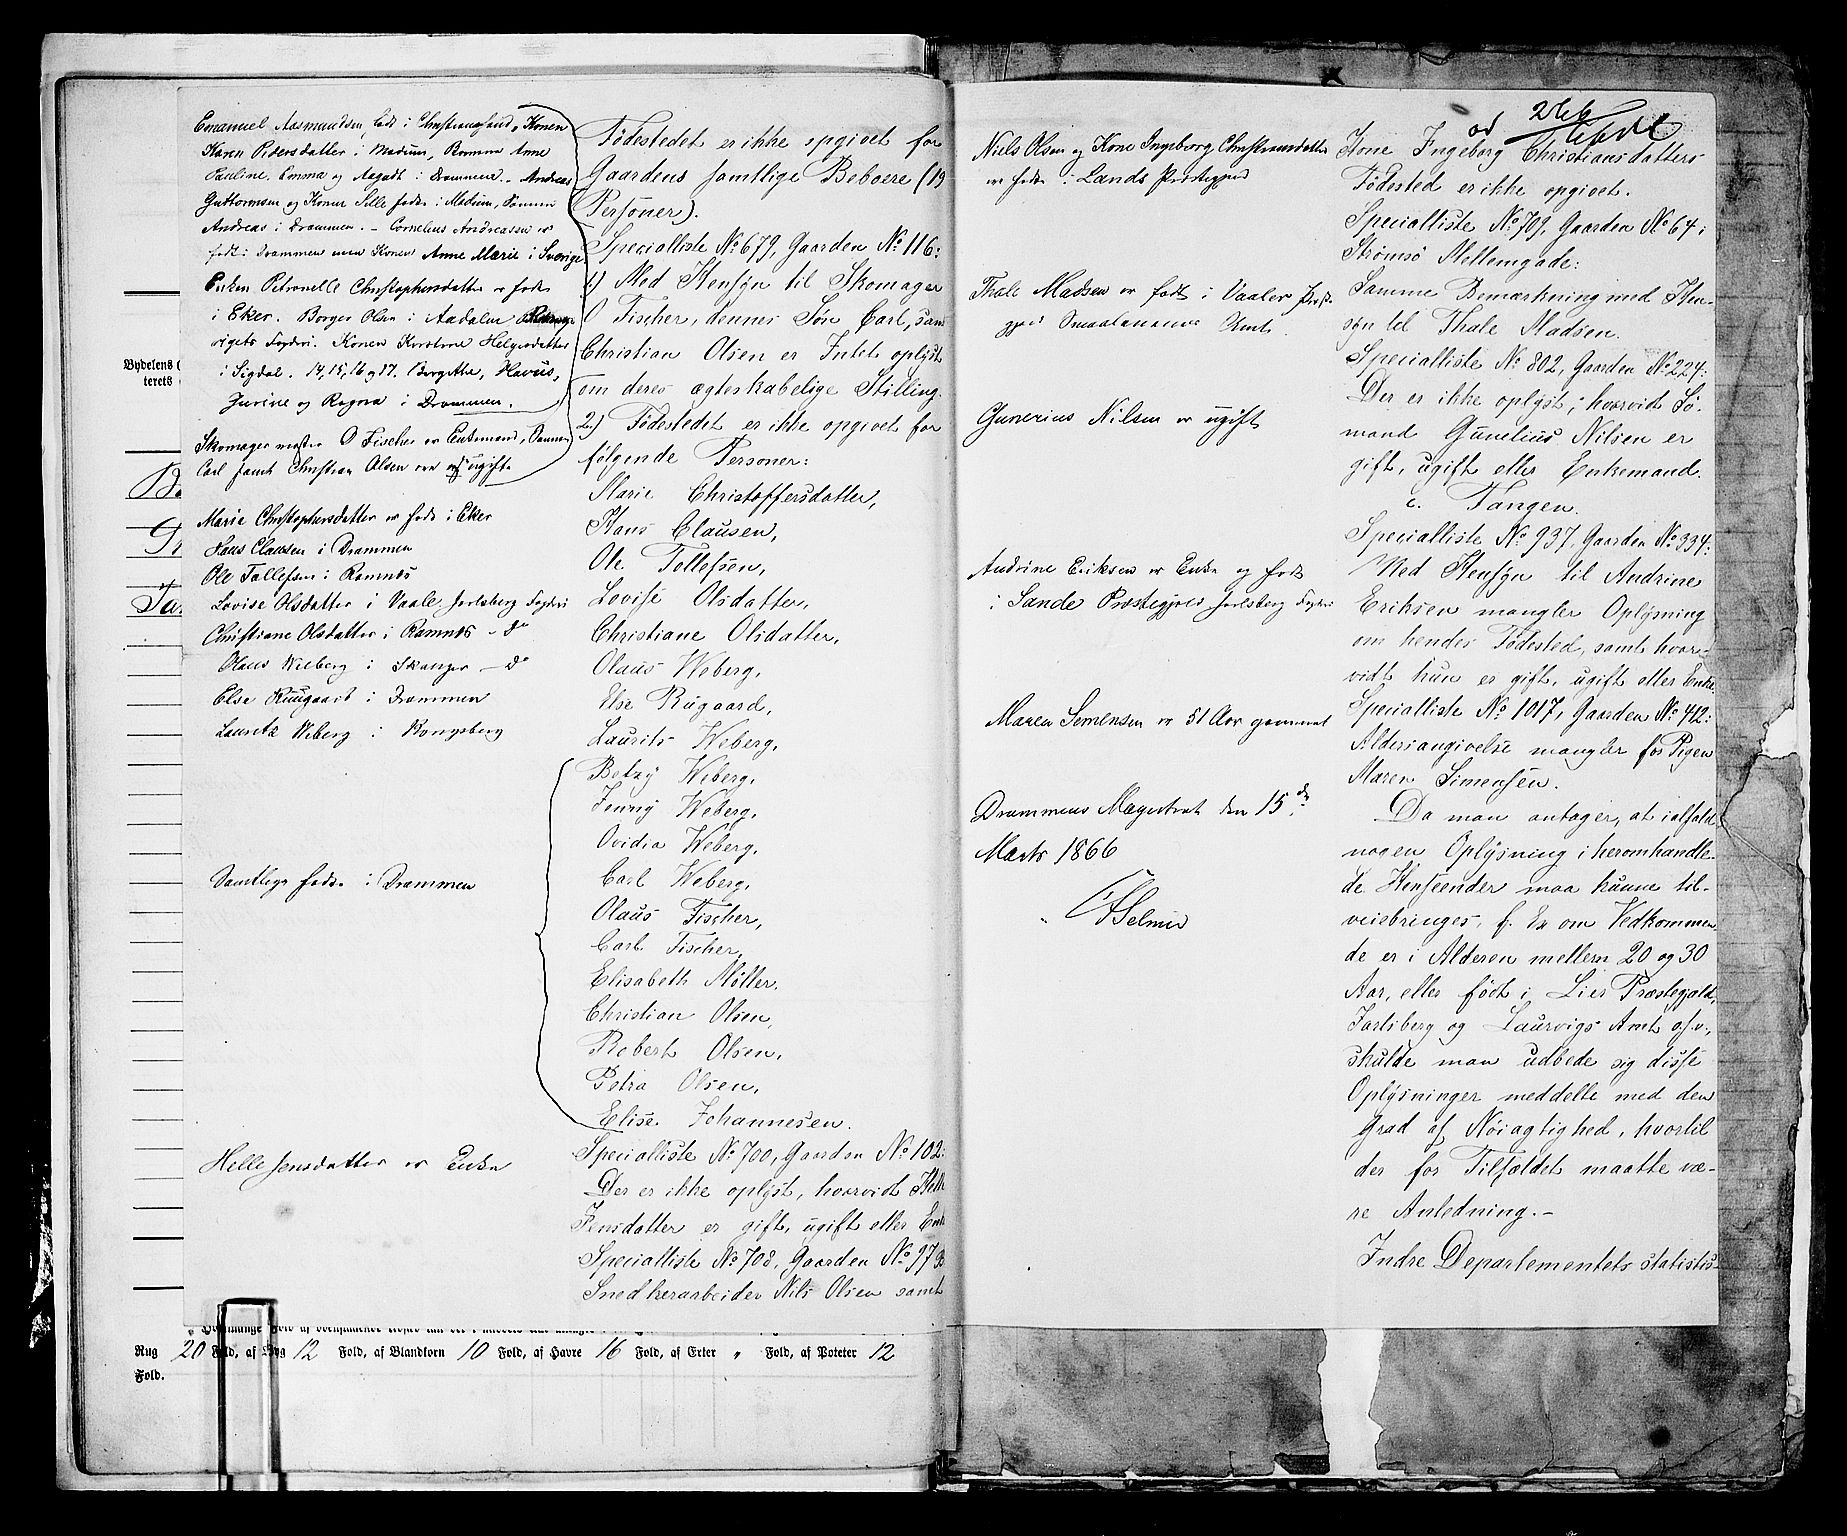 Emanuel Aasmundsen, født i Christiansand, Konen
Karen Pedersdatter i Modum, Børnene Anne
Pauline, Emma og Aagodt i Drammen. Andreas
Guttormsen og Konen Sille fødte i Modum, Sønnen
Andreas i Drammen. - Cornelius Andreassen er
født i Drammen men Konen Anne Marie i Sverige
Enken Petronelle Christophersdatter er født
i Eker. Borger Olsen i Aadalen
rigets Fogderi. Konen Kirstine Helgesdatter
i Sigdal. 14, 15, 16 og 17. Bergithe, Havus,
Jurine og Ragna i Drammen.
Skomagermester O Fischer er Enkemand, Sønnen
Carl samt Christian Olsen ere ugifte
Marie Christophersdatter er født i Eker
Hans Clausen i Drammen
Ole Tollefsen i Ramnæs
Lovise Olsdatter i Vaale Jarlsberg Fogderi
Christiane Olsdatter i Ramnæs - do
Olaus Weberg i Skauger - do
Else Ruugaard i Drammen
Lauritz Weberg i Kongsberg
Samtlige fødte i Drammen
Helle Jensdatter er Enke
Fødestedet er ikke opgivet for
Gaardens samtlige Beboere (19
Personer).
Specialliste No 679, Gaarden No 116:
1.) Med Hensyn til Skomager
O Fischer, dennes Søn Carl, samt
Christian Olsen er Intet oplyst
om deres ægteskabelige Stilling.
2.) Fødestedet er ikke opgivet for
følgende Personer:
Marie Christoffersdatter,
Hans Clausen,
Ole Tollefsen,
Lovise Olsdatter,
Christiane Olsdatter,
Olaus Weberg,
Else Rugaard,
Laurits Weberg,
Betzy Weberg,
Jenny Weberg,
Ovidia Weberg,
Carl Weberg,
Olaus Fischer,
Carl Fischer,
Elisabeth Møller,
Christian Olsen,
Robert Olsen,
Petra Olsen,
Elise Johannesen.
Specialliste No 700, Gaarden No 102:
Der er ikke oplyst, hvorvidt Helle
Jensdatter er gift, ugift eller Enke
Specialliste No 708, Gaarden No 97
Snedkerarbeider Nils Olsen samt
Bydelens (
terets
Rug 20 Fold, af Byg 12 Fold, af Blandkorn 10 Fold, af Havre 16 Fold, af Erter " Fold, af Poteter 12
Fold.
Niels Olsen og Kone Ingeborg Christiansdatter
er fødte i Lands Præstegjeld
Thale Madsen er født i Vaaler Præste
gjeld Smaalenenes Amt.
Gunerius Nilsen er ugift
Andrine Eriksen er Enke og født
i Sande Præstegjeld Jarlsberg Fogderi
Maren Semensen er 51 Aar gammel
Drammens Magistrat den 15de
Marts 1866
266
Kone Ingeborg Christiansdatters
Fødested er ikke opgivet.
Specialliste No 709, Gaarden No 64 i
Strømsø Mellemgade:
Samme Bemærkning med Hen-
syn til Thale Madsen.
Specialliste No 802, Gaarden No 224:
Der er ikke oplyst, hvorvidt Sø-
mand Gunelius Nilsen er
gift, ugift eller Enkemand.
c. Tangen.
Specialliste No 937, Gaarden No 334:
Med Hensyn til Andrine
Eriksen mangler Oplysning
om hendes Fødested, samt hvor-
vidt hun er gift, ugift eller Enke.
Specialliste No 1017, Gaarden No 412:
Aldersangivelse mangler for Pigen
Maren Simensen.
Da man antager, at ialfald
nogen Oplysning i heromhandle-
de Henseender maa kunne til-
veiebringes, f. Ex om Vedkommen
de er i Alderen mellem 20 og 30
Aar, eller født i Lier Præstegjeld,
Jarlsberg og Laurvigs Amt o.s.v.,
skulde man udbede sig disse
Oplysninger meddelte med den
Grad af Nøiagtighed, hvortil
der for Tilfældet maatte væ-
re Anledning.-
Indre Departementets statistis-